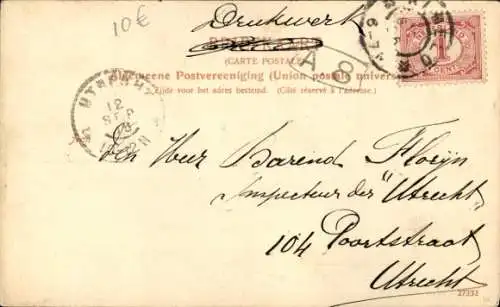 10€
Drukwerk
BRIEFKAART
(CARTE POSTALE)
Algemeene Postvereeniging (Union postale universelle)
Zijde voor het adres bestemd. (Côté réservé à l'adresse.)
1
CENT
UTRECHT
12
SEP
Den Heer Barend Florijn
Inspecteur der "Utrecht"
104 Poortstraat
Utrecht
27252